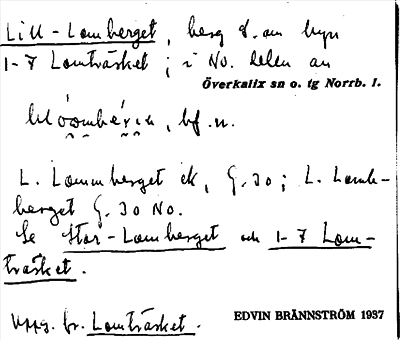 Lill-Lomberget, berg S.om byn
1-7 Lomträsket; i No. delen av
Överkalix sn o. tg Norrb. l.
bf. n.
L. Lommberget ek, G. 30; L. Lomb-
berget G. 30 NO.
Se Stor-Lomberget och 1-7 Lom-
träsket.
Uppg. fr. Lomträsket.
EDVIN BRÄNNSTRÖM 1937